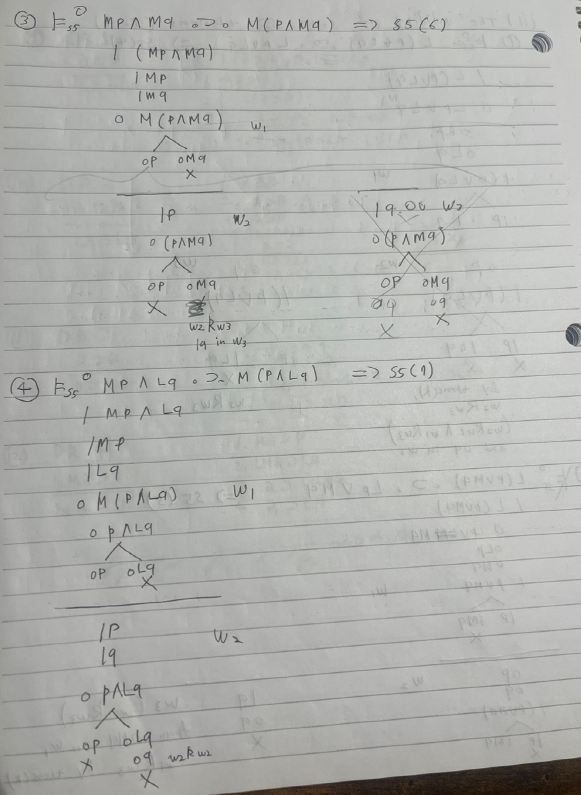 ③ ⊨S5 0 Mp ∧ Mq . ⊃ . M(p ∧ Mq) => S5(6)
1 (Mp ∧ Mq)
1 Mp
1 Mq
0 M(p ∧ Mq) w₁
0p 0Mq
X
1p w₂
0(p ∧ Mq)
0p 0Mq
X
w₂Rw₃
1q in w₃
1q w₂
0(p ∧ Mq)
0p 0Mq
0q 0q
X X
④ ⊨S5 0 Mp ∧ Lq . ⊃ . M(p ∧ Lq) => S5(9)
1 Mp ∧ Lq
1Mp
1Lq
0 M(p ∧ Lq) w₁
0 p ∧ Lq
0p 0Lq
X
1p w₂
1q
0 p ∧ Lq
0p 0Lq
X 0q w₂Rw₂
X